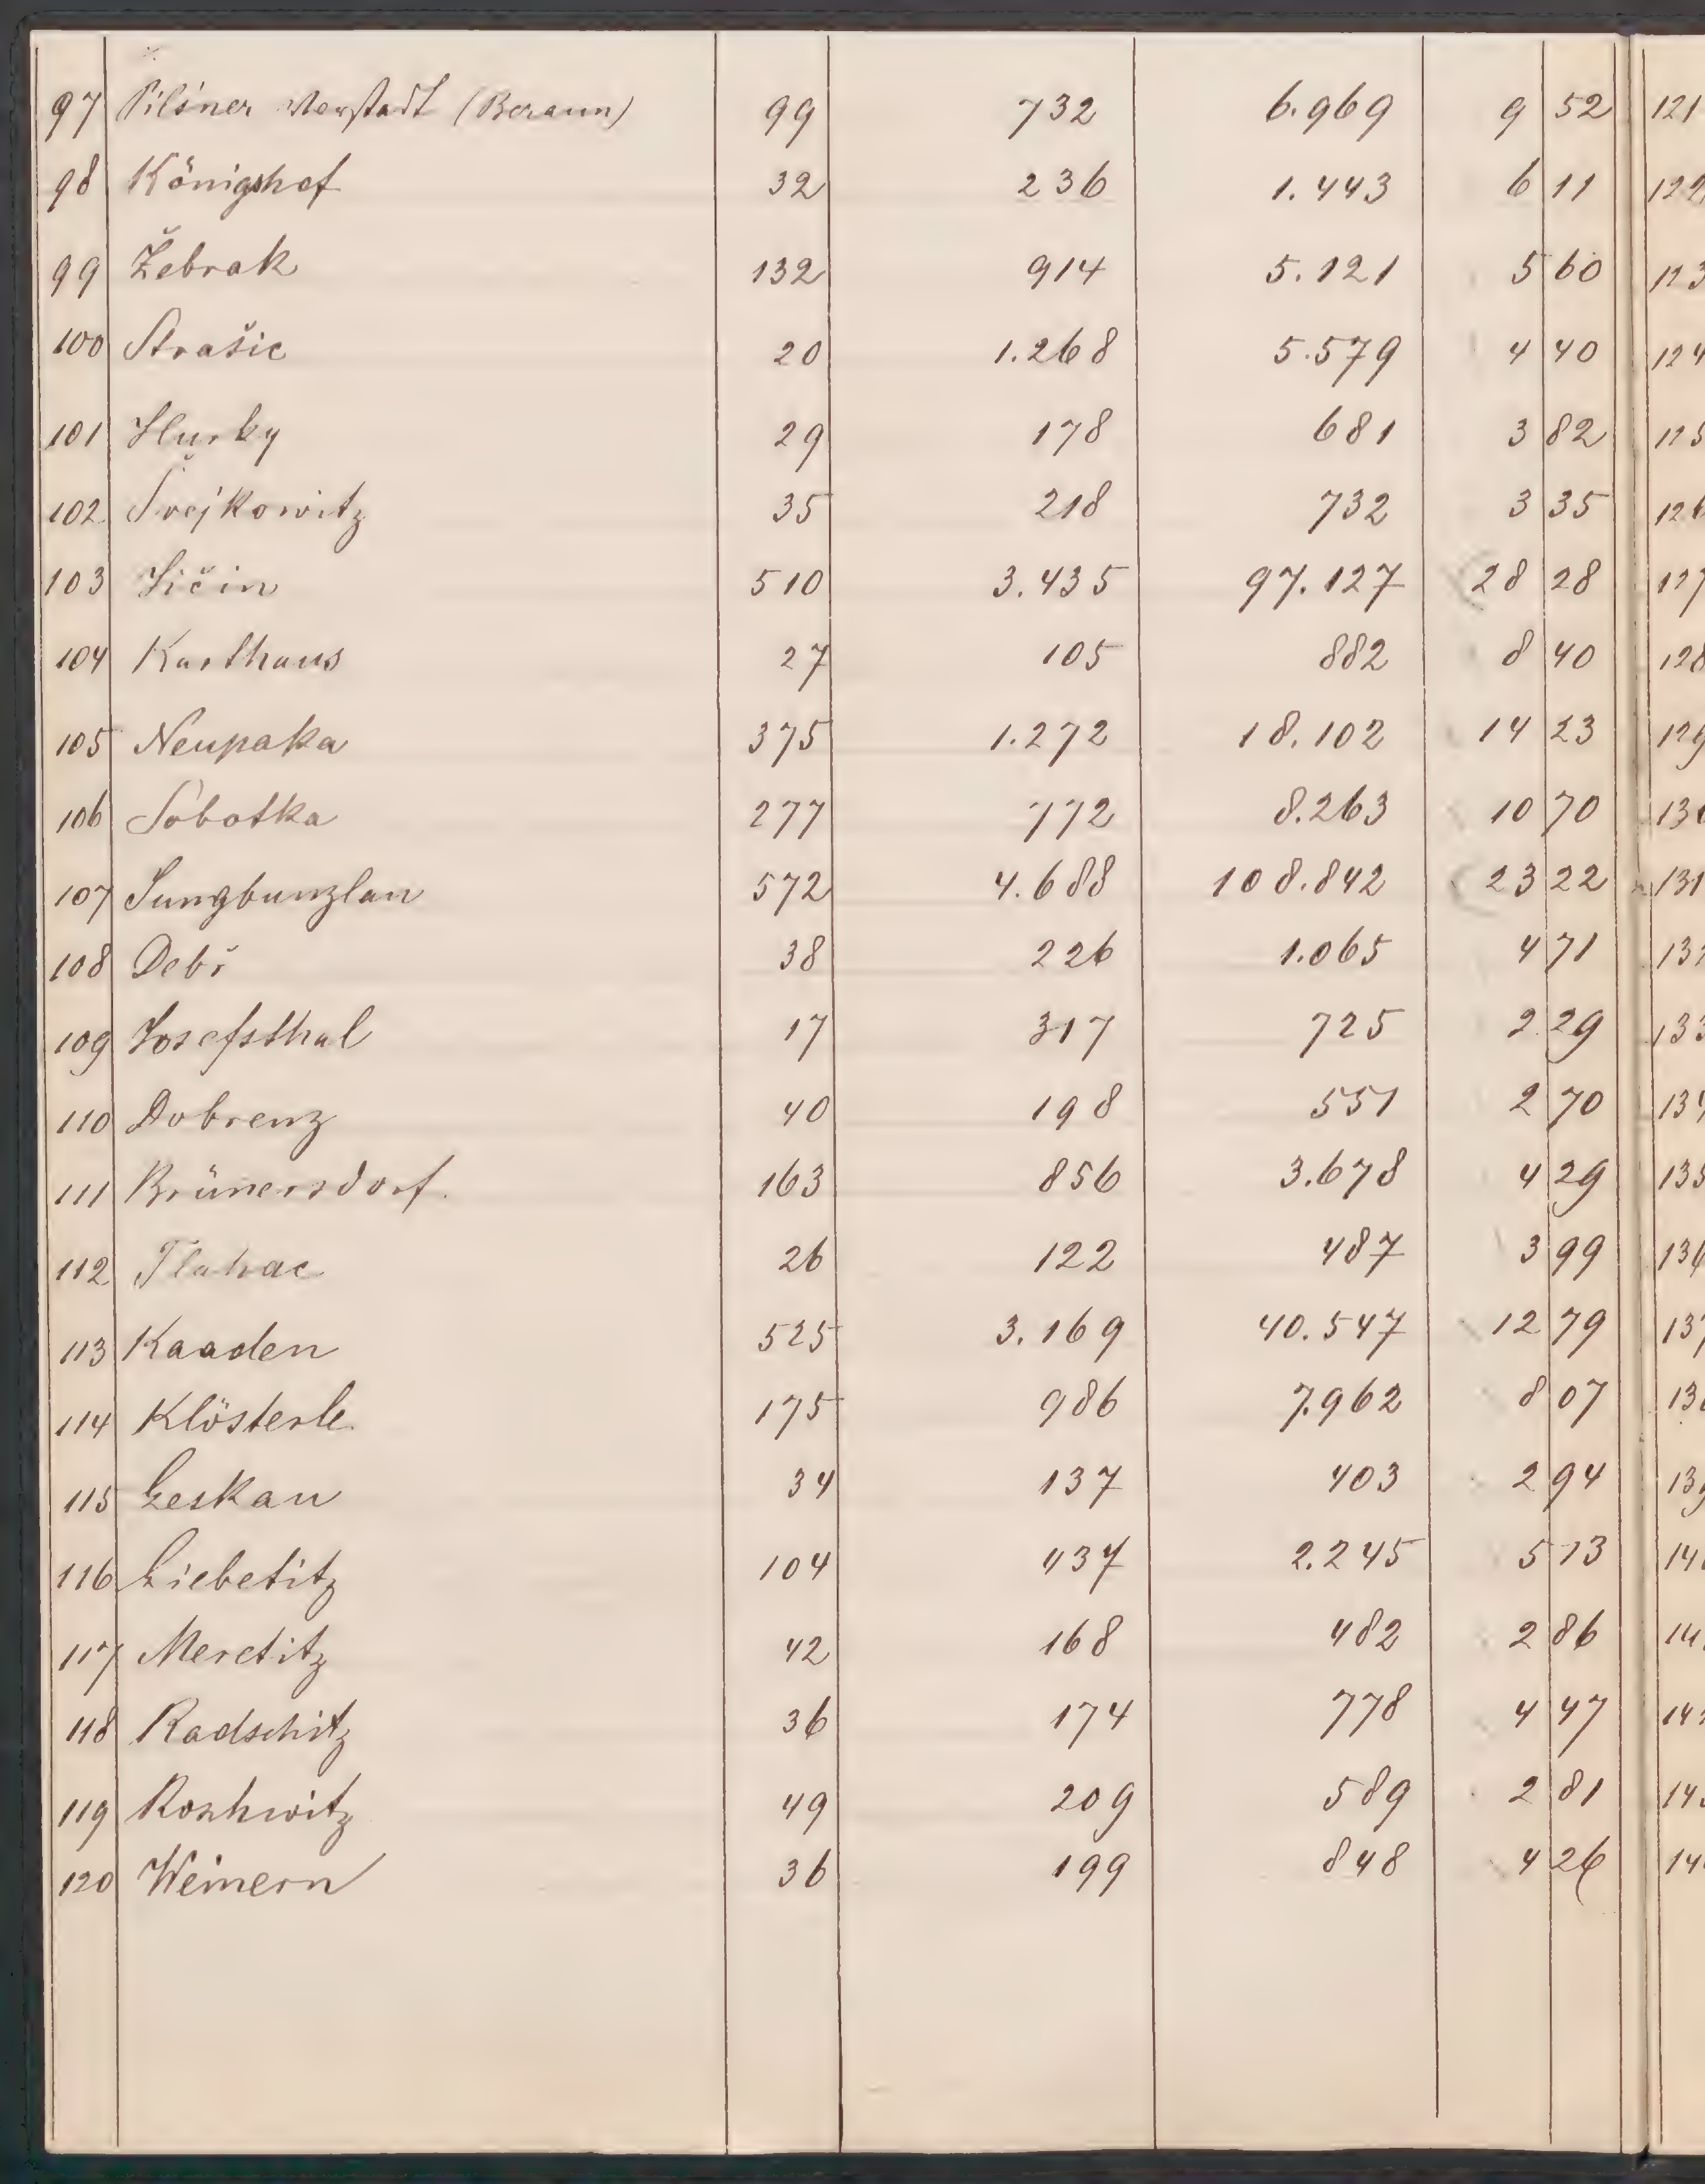 97 Pilsner Vorstadt (Beraun) 99 732 6.969 9 52 121
98 Königshof 32 236 1.443 6 11 122
99 Žebrak 132 914 5.121 5 60 123
100 Strašic 20 1.268 5.579 4 40 124
101 Hurky 29 178 681 3 82 125
102 Švejkowitz 35 218 732 3 35 126
103 Jičin 510 3.435 97.127 28 28 127
104 Karthaus 27 105 882 8 40 128
105 Neupaka 375 1.272 18.102 14 23 129
106 Sobotka 277 772 8.263 10 70 130
107 Jungbunzlau 572 4.688 108.842 23 22 131
108 Debř 38 226 1.065 4 71
109 Josefsthal 17 317 725 2 29 133
110 Dobrenz 40 198 551 2 70
111 Brünersdorf. 163 856 3.678 4 29 135
112 Tlahac 26 122 487 3 99 136
113 Kaaden 525 3.169 40.547 12 79 137
114 Klösterle 175 986 7.962 8 07
115 Leskau 34 137 403 2 94
116 Liebetitz 104 437 2.245 5 13
117 Meretitz 42 168 482 2 86
118 Radschitz 36 174 778 4 47
119 Roschwitz 49 209 589 2 81
120 Weinern 36 199 848 4 26